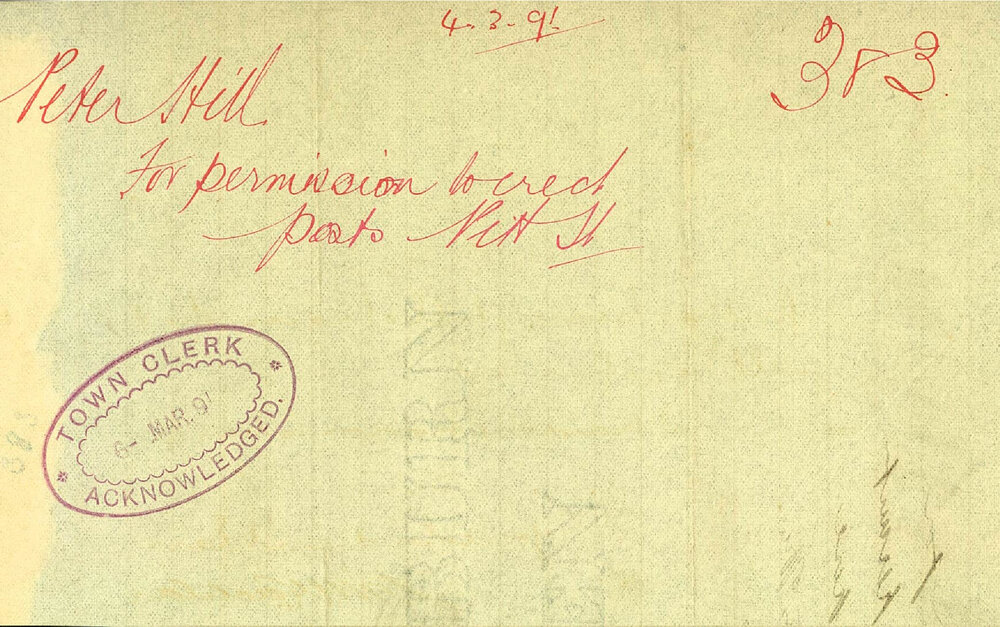 4.3.91
383
Peter Hill
For permission to erect
posts Pitt St
TOWN CLERK
6- MAR.91
ACKNOWLEDGED.